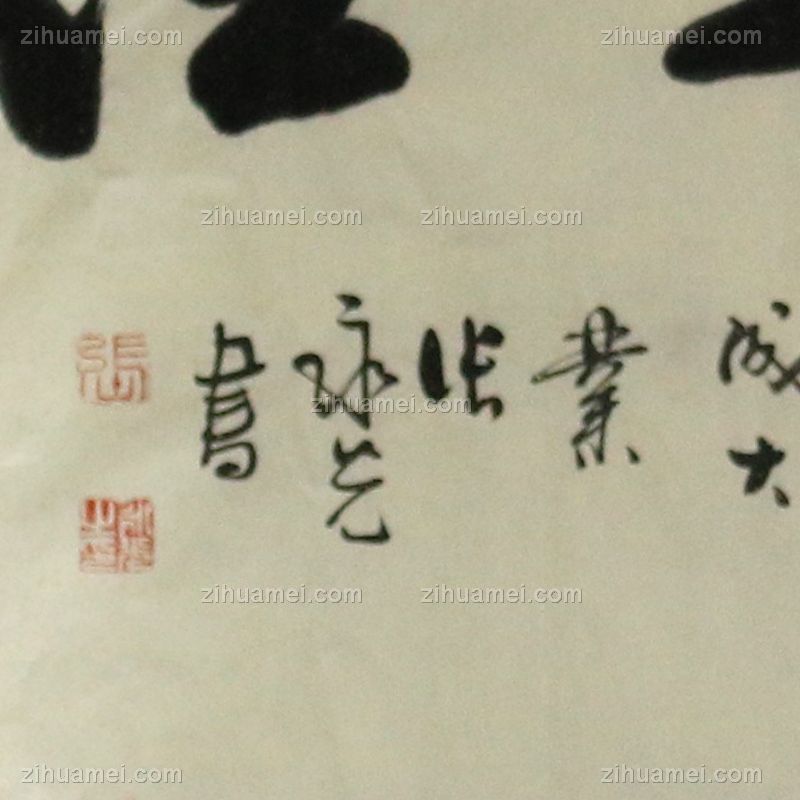 zihuamei.com zihuamei.com
zihuamei.com zihuamei.com
成大
業
張
永先
書
張
zihuamei.com zihuamei.com
zihuamei.com zihuamei.com
zihuamei.com zihuamei.com